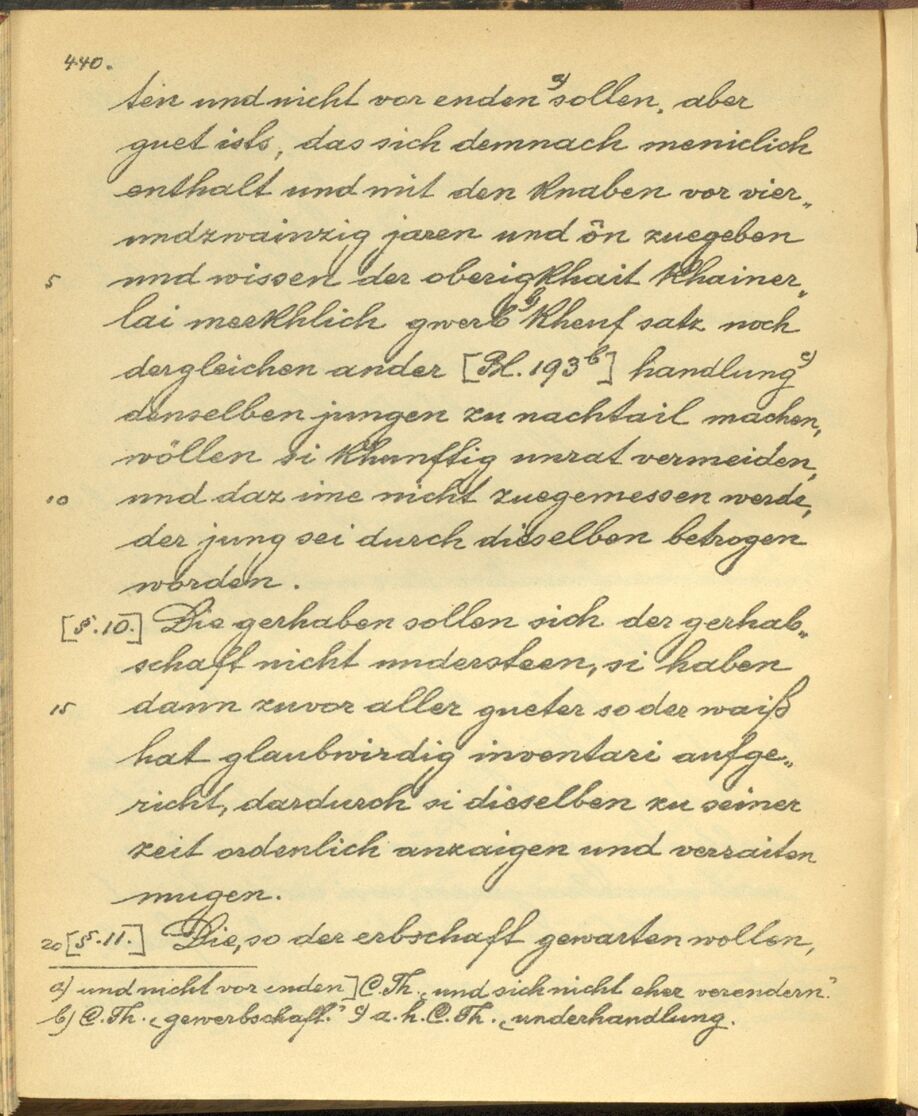 440.
ten und nicht vor enden a) sollen, aber
guet ists, das sich demnach meniclich
enthalt und mit den knaben vor vier„
undzwainzig jaren und ôn zuegeben
5 und wissen der oberigkhait khainer„
lai merkhlich gwerb b) kheuf satz noch
dergleichen ander [Bl. 193b] handlung c)
denselben jungen zu nachtail machen,
wöllen si khunftig unrat vermeiden,
10 und daz ime nicht zuegemessen werde,
der jung sei durch dieselben betrogen
worden.
[§.10.] Die gerhaben sollen sich der gerhab„
schaft nicht understeen, si haben
15 dann zuvor aller gueter so der waiß
hat glaubwirdig inventari aufge„
richt, dardurch si dieselben zu seiner
zeit ordenlich anzaigen und verraiten
mugen.
20 [§.11.] Die, so der erbschaft gewarten wollen,
a) und nicht vor enden] C. Th. „und sich nicht eher verendern."
b) C. Th. „gewerbschaft." c) a. h. C. Th. „underhandlung.